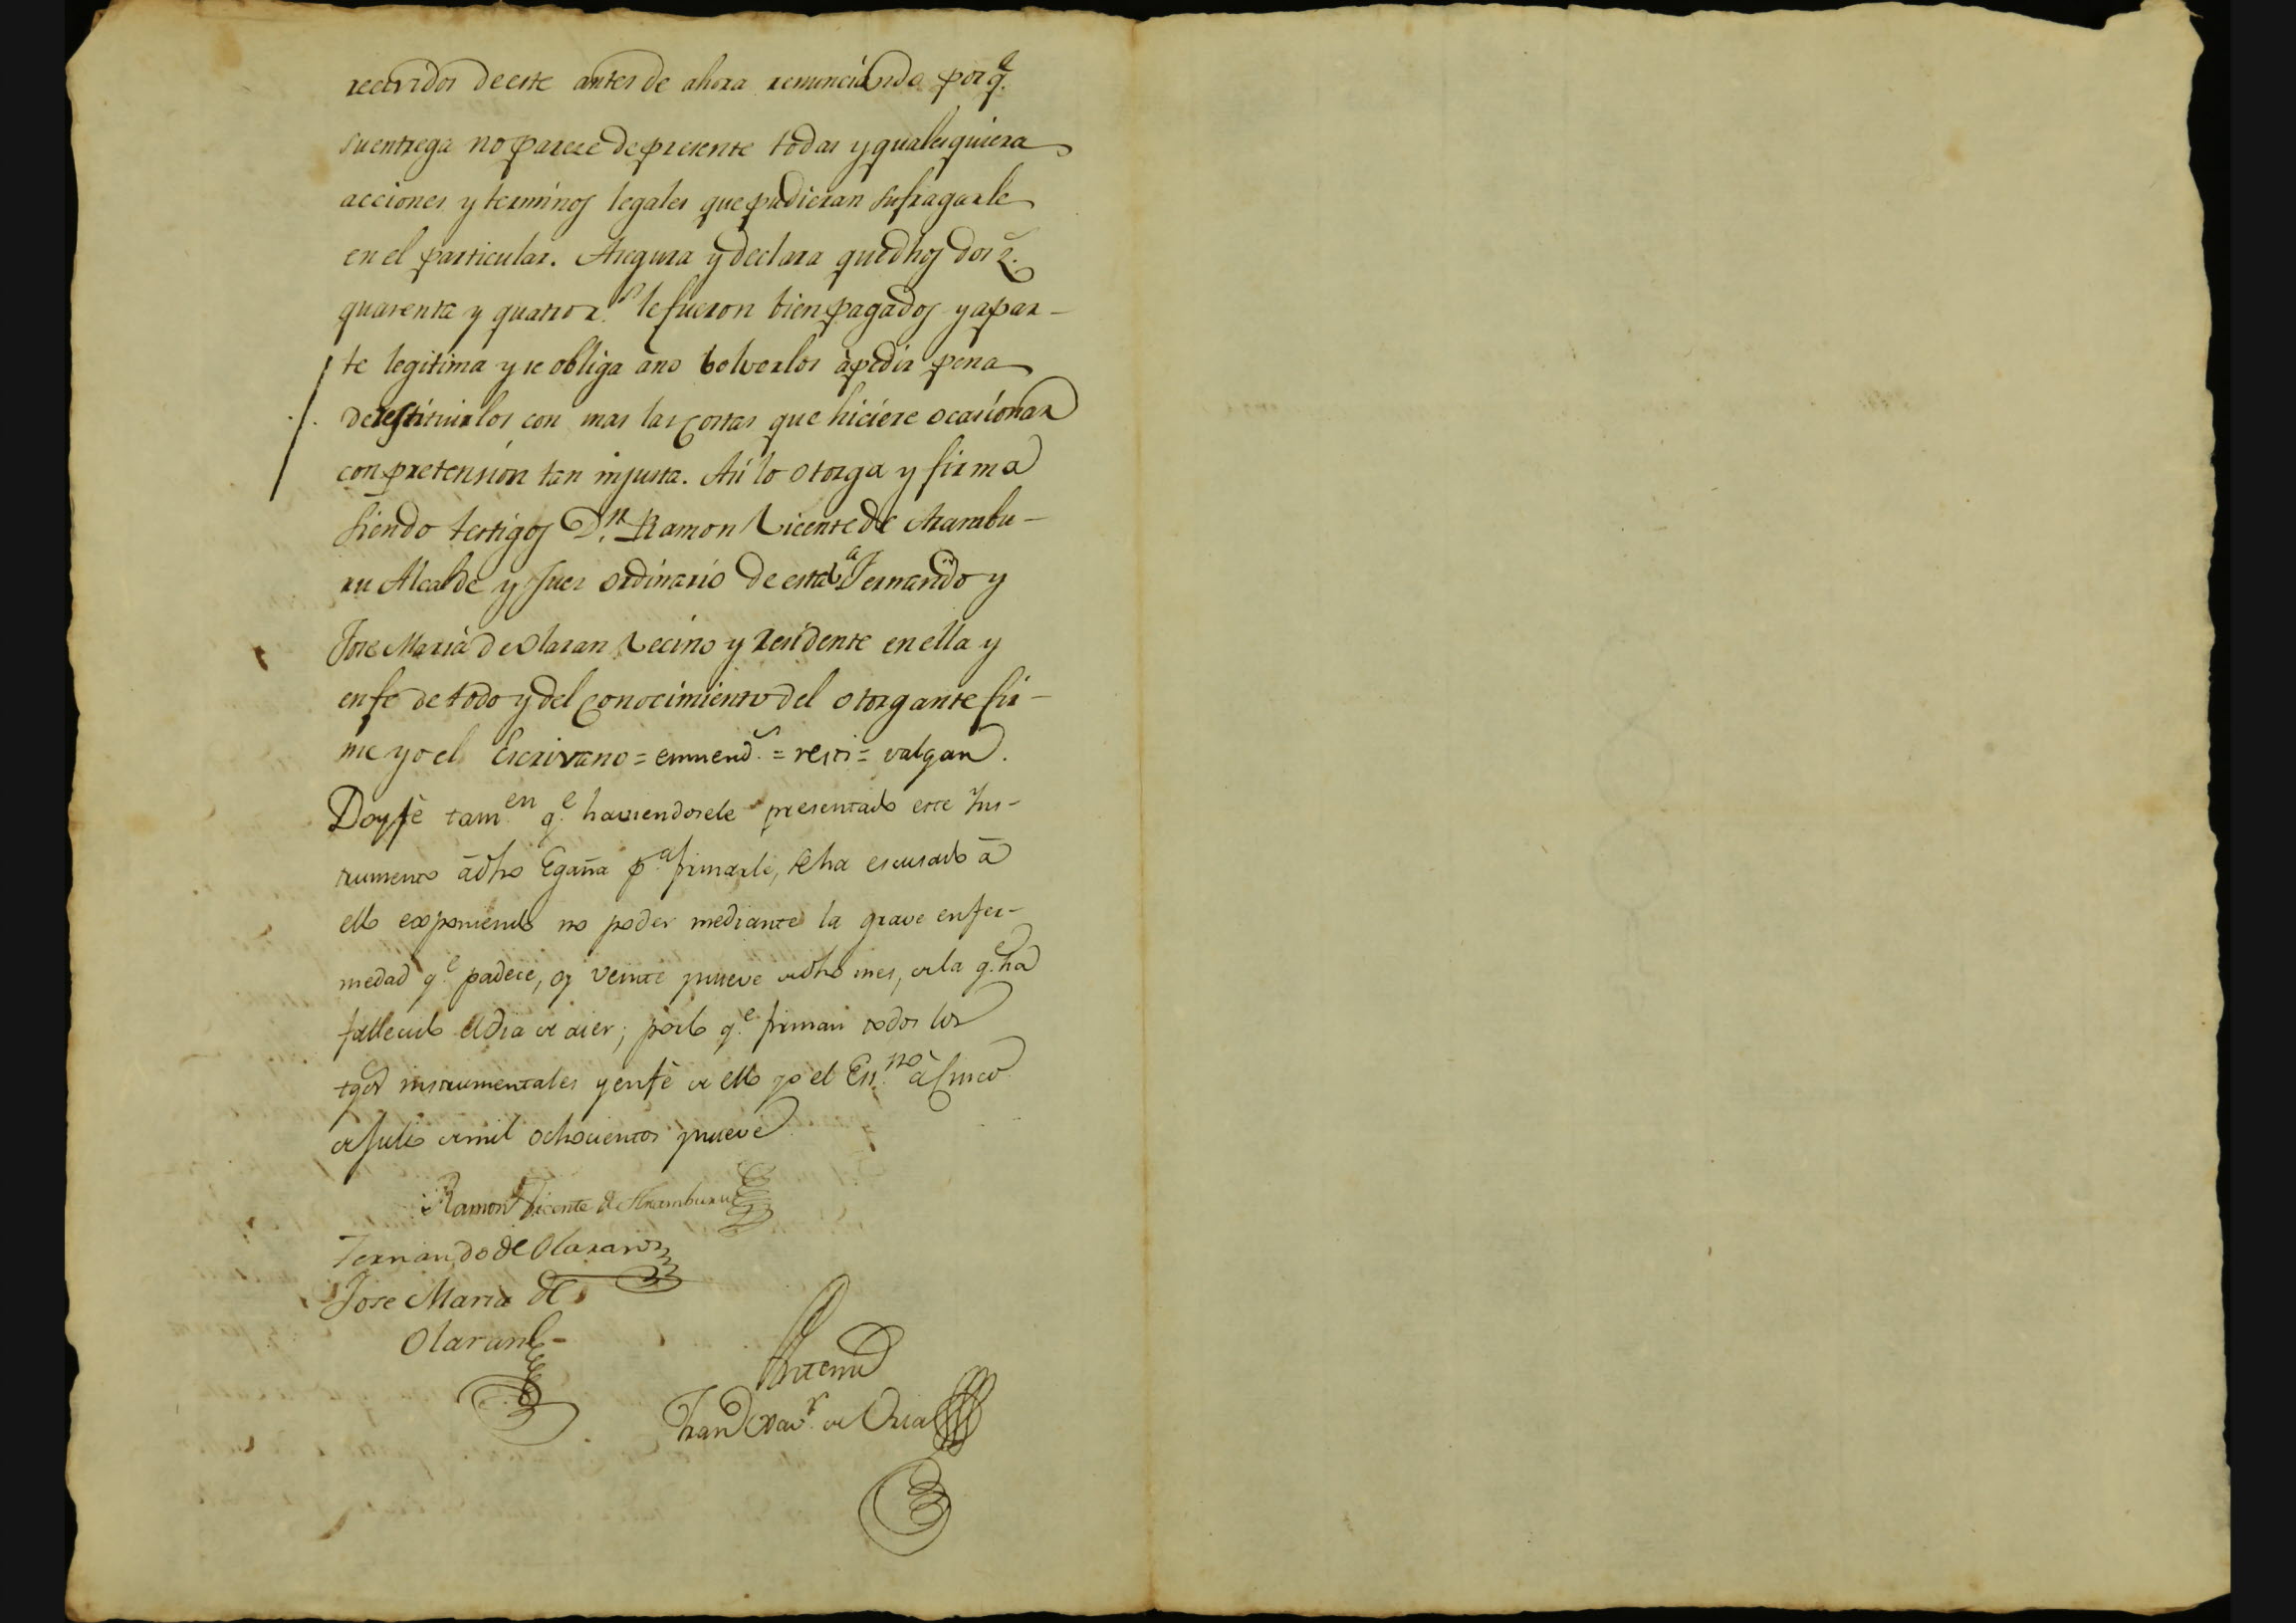 recividos de este antes de ahora renunciando por q.e
su entrega no parece de presente todas y qualesquiera
acciones y terminos legales que pudieran sufragarle
en el particular. Asegura y declara que dhos dos
quarenta y quatro r.s le fueron bien pagados y a par-
te legitima y se obliga à no bolverlos à pedir pena
de restituirlos con mas las costas que hiciere ocasionar
con pretension tan injusta. Asi lo otorga y firma
siendo testigos D.n Ramon Vicente de Arambu-
ru Alcalde y Juez ordinario de esta V.a Fernando y
Jose Maria de Olaran Vecino y Residente en ella y
en fe de todo y del conocimiento del otorgante fir-
me yo el Escrivano = enmend.s = resti = valgan.
Doy fè tam.en q.e haviendosele presentado este Ins-
trumento ā dho Egaña p.a firmarle, se ha escusado ā
ello exponiendo no poder mediante la grave enfer-
medad q.e padece, oy veinte y nueve de dho mes, de la q.e ha
fallecido el dia de aier; por lo q.e firman todos los
tgos instrumentales y en fè de ello yo el Ess.no à cinco
de Julio de mil ochocientos y nueve
Ramon Vicente de Aramburu
Fernando de Olaran
Jose Maria de
Olaran
Antemi
Fran.co Xav.r de Oria